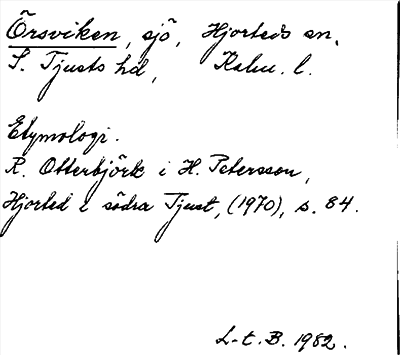 Örsviken, sjö, Hjorteds sn,
S. Tjusts hd, Kalm. l.
Etymologi.
R. Otterbjörk i H. Petersson,
Hjorted i södra Tjust, (1970), s. 84.
L-t. B. 1982.